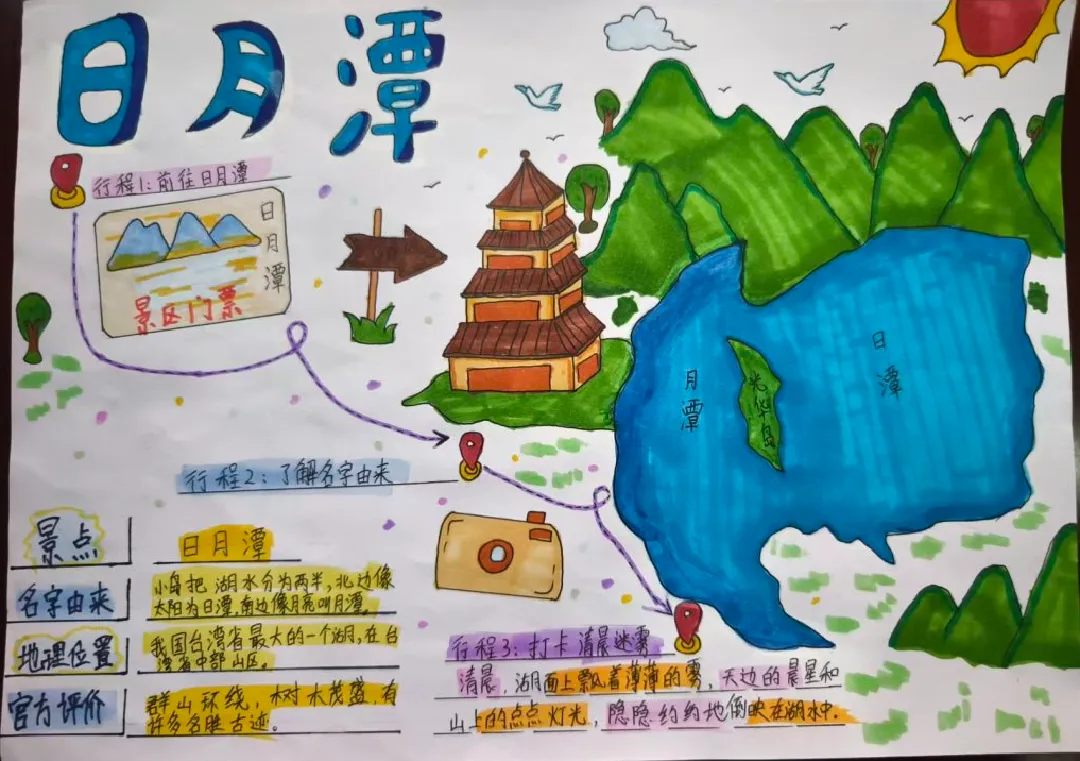 日月潭
行程1:前往日月潭
日月潭
景区门票
行程2:了解名字由来
月潭
光华岛
日潭
景点
日月潭
名字由来
小岛把湖水分为两半,北边像
太阳为日潭,南边像月亮叫月潭。
地理位置
我国台湾省最大的一个湖,在台
湾省中部山区。
官方评价
群山环绕,树木茂盛,有
许多名胜古迹。
行程3:打卡清晨迷雾
清晨,湖面上飘着薄薄的雾,天边的晨星和
山上的点点灯光,隐隐约约地倒映在湖水中.